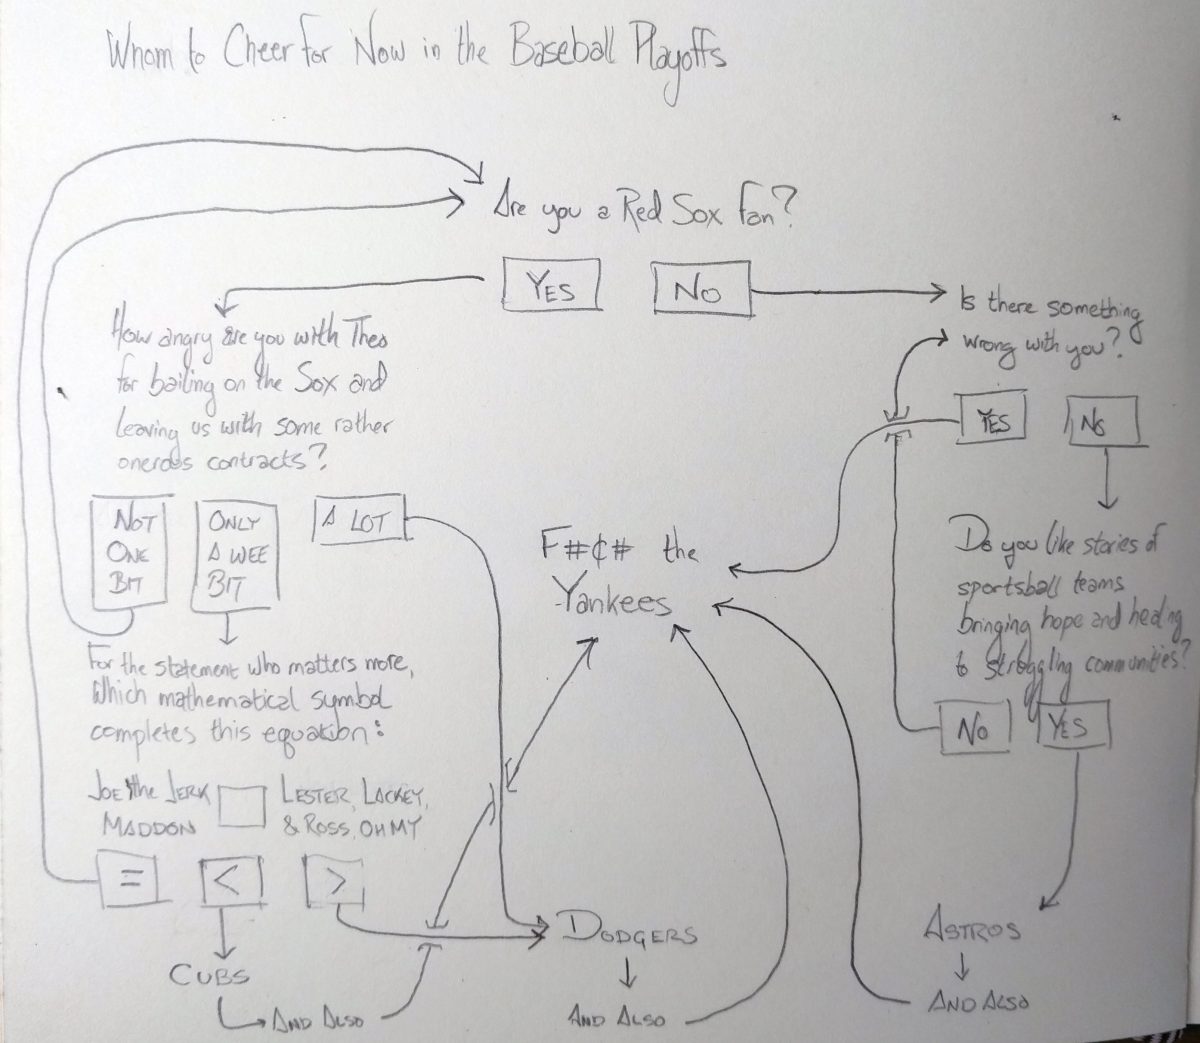 Whom to Cheer for Now in the Baseball Playoffs
Are you a Red Sox Fan?
YES
NO
How angry are you with Theo
for bailing on the Sox and
leaving us with some rather
onerous contracts?
NOT
ONE
BIT
ONLY
A WEE
BIT
A LOT
For the statement who matters more,
which mathematical symbol
completes this equation:
JOE the JERK
MADDON
LESTER, LACKEY,
& ROSS, OH MY
=
<
>
CUBS
AND ALSO
F#¢# the
Yankees
DODGERS
AND ALSO
Is there something
wrong with you?
YES
NO
Do you like stories of
sportsball teams
bringing hope and healing
to struggling communities?
NO
YES
ASTROS
AND ALSO